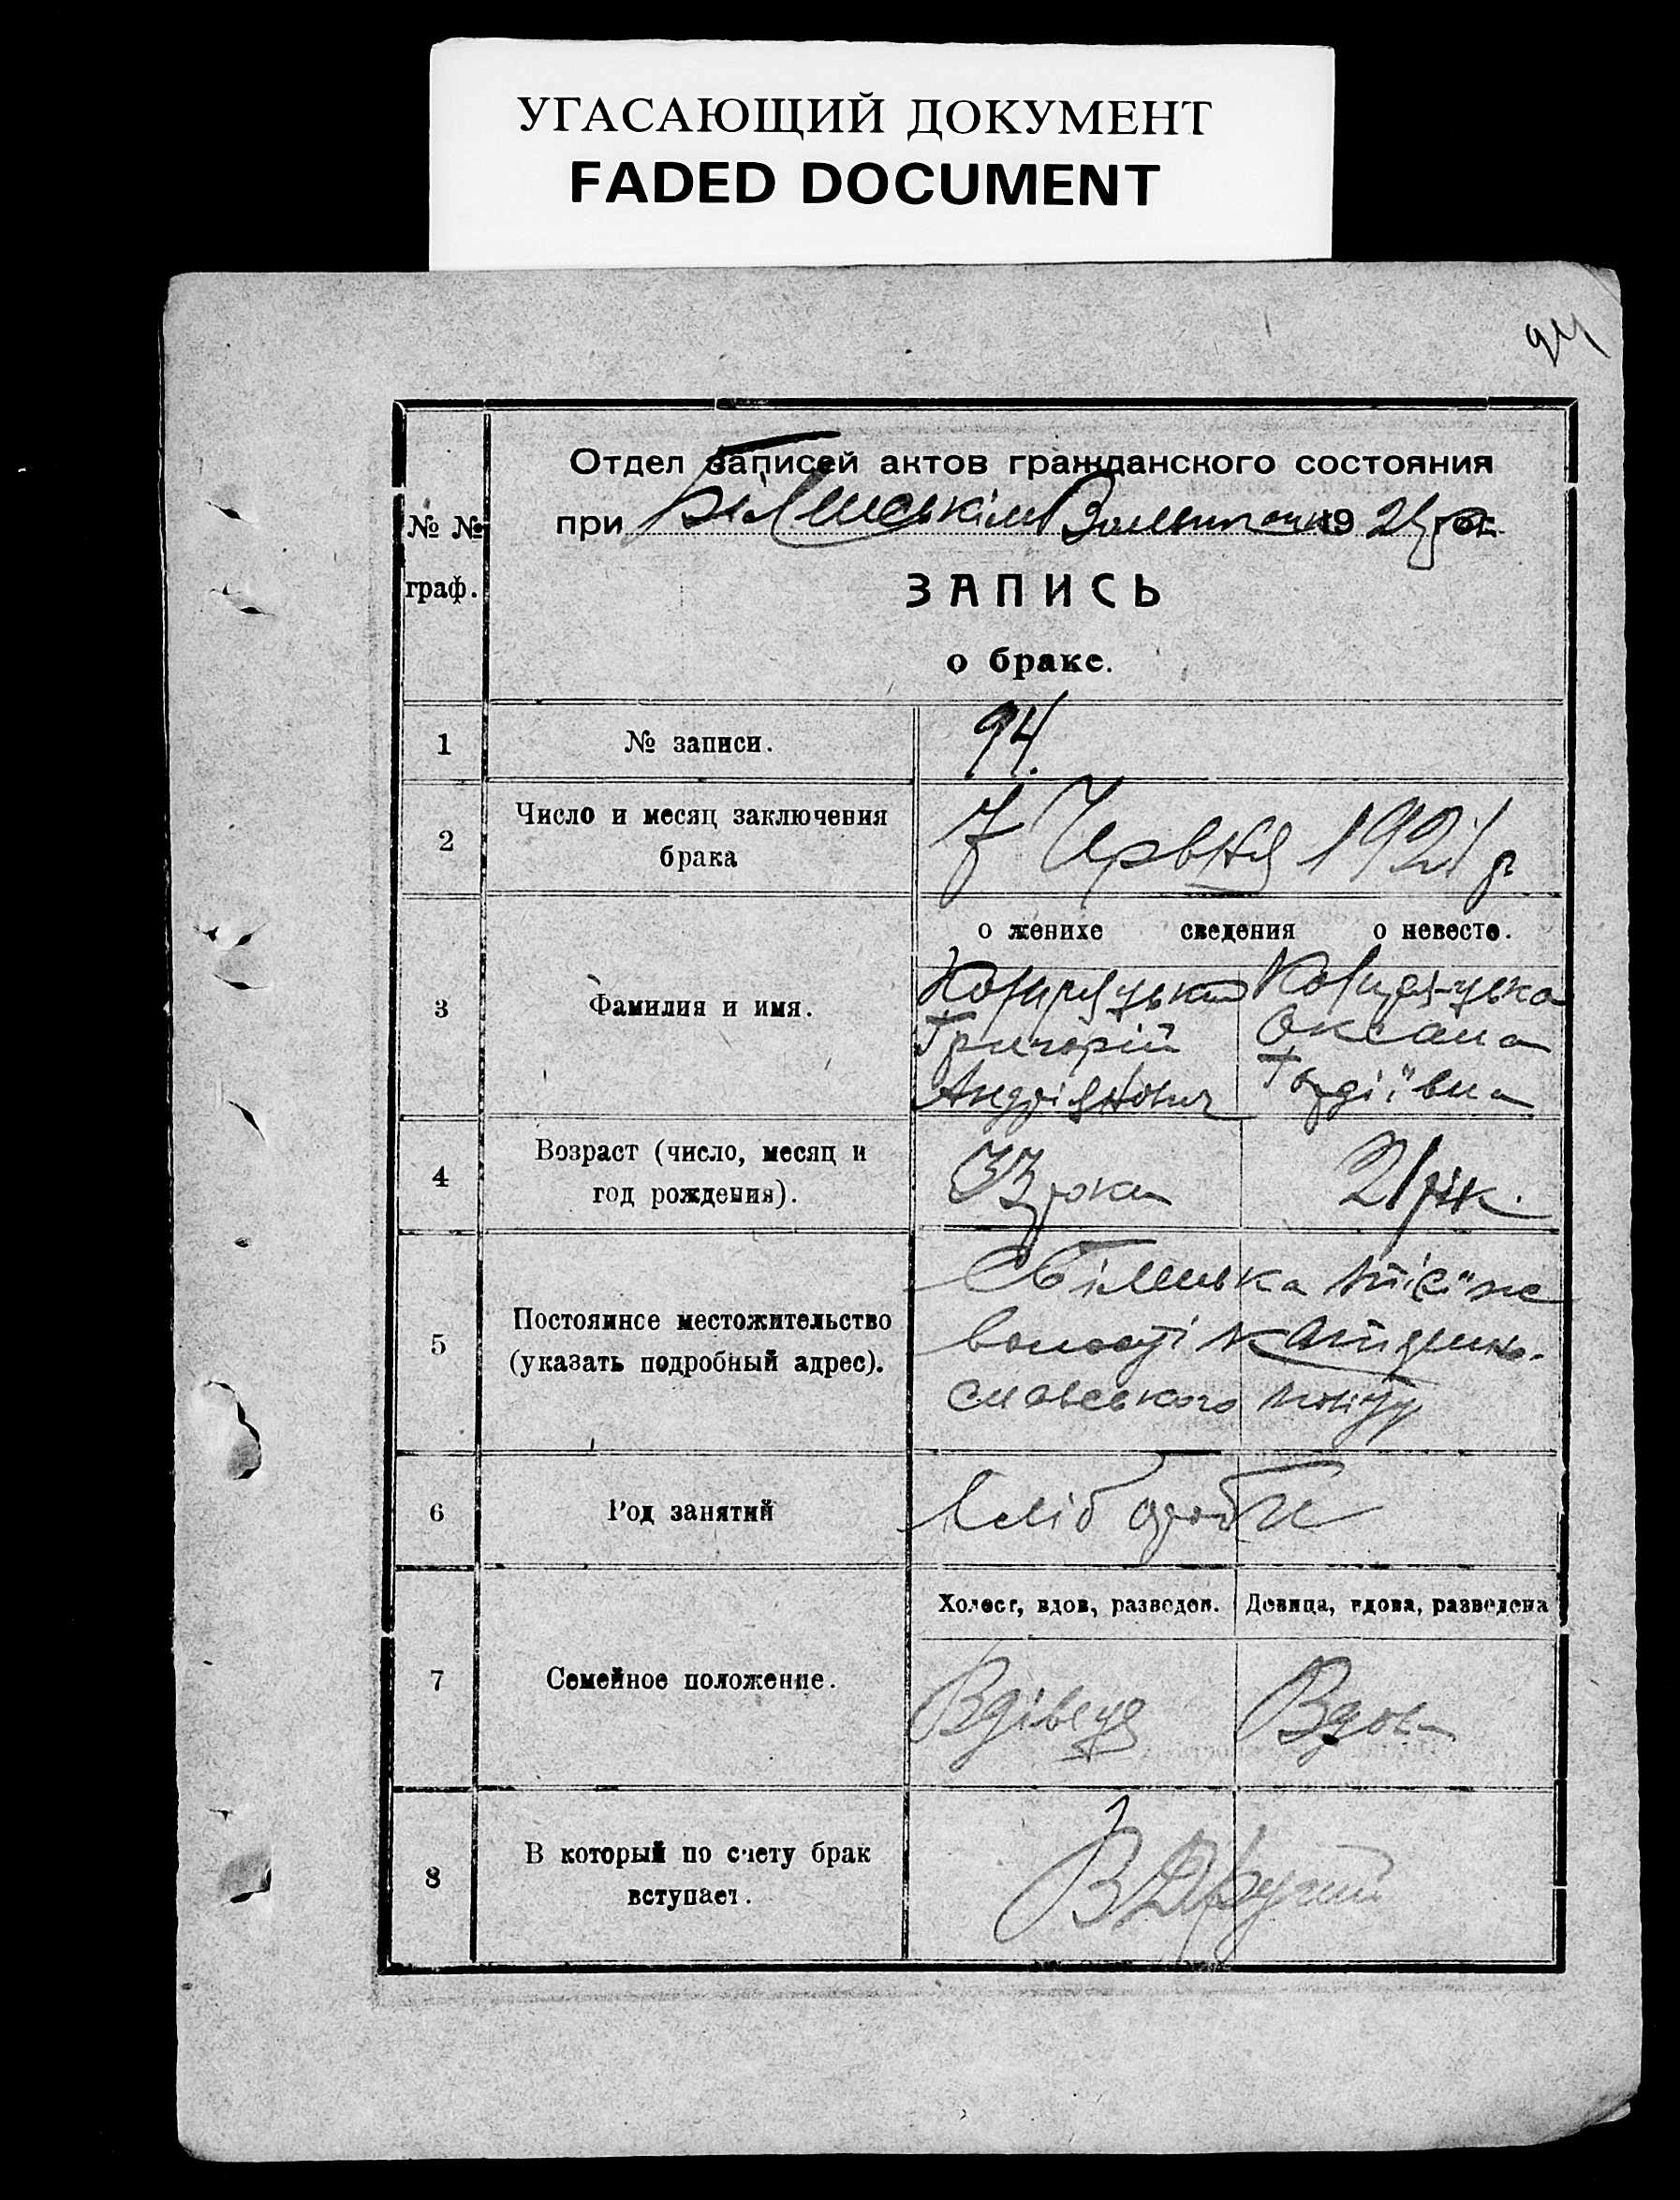 УГАСАЮЩИЙ ДОКУМЕНТ
FADED DOCUMENT
94
Отдел записей актов гражданского состояния
№ №
граф.
при 192 р
ЗАПИСЬ
о браке.
1
№ записи.
94.
2
Число и месяц заключения
брака
7 Червня 1921 р
о женихе сведения о невесте.
3
Фамилия и имя.
Григорій Оксана
Гордіївна
4
Возраст (число, месяц и
год рождения).
33 роки
21 рік.
5
Постоянное местожительство
(указать подробный адрес).
волості
славського повіту
6
Род занятий
Хліб ороби
7
Семейное положение.
Холост, вдов, разведен. Девица, вдова, разведена
Вдівець Вдова
8
В который по счету брак
вступает.
В Другий